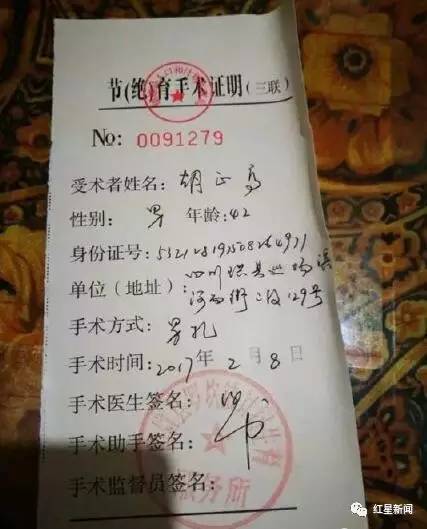 节(绝)育手术证明(三联)
No: 0091279
受术者姓名: 胡正高
性别: 男 年龄: 42
身份证号:
单位(地址): 四川珙县巡场镇
河西街二段129号
手术方式: 男扎
手术时间: 2017年 2月 8日
手术医生签名:
手术助手签名:
手术监督员签名:
服务所
红星新闻